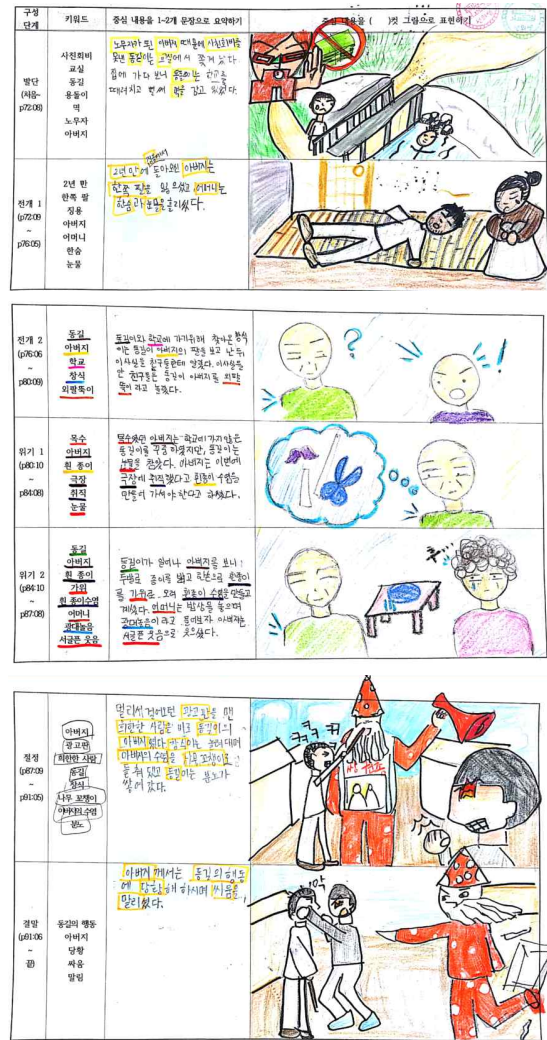 구성
단계
키워드
중심 내용을 1~2개 문장으로 요약하기
중심 내용을 ( )컷 그림으로 표현하기
발단
(처음~
p72:08)
사친회비
교실
동길
용돌이
멱
노무자
아버지
노무자가 된 아버지 때문에 사친회비를
못낸 동길이는 교실에서 쫓겨 났다
집에 가다 보니 용돌이는 학교를
때려치고 멱을 감고 있었다.
전개 1
(p72:09
~
p76:05)
2년 만
한쪽 팔
징용
아버지
어머니
한숨
눈물
징용에서
2년 만에 돌아오신 아버지는
한쪽 팔을 잃으셨고 어머니는
한숨과 눈물을 흘리셨다.
전개 2
(p76:06
~
p80:09)
동길
아버지
학교
창식
외팔뚝이
동길이와 학교에 가기위해 찾아온 창식
이는 동길이 아버지의 팔을 보고 난 후
이사실을 친구들한테 알렸다. 이사실을
안 친구들은 동길이 아버지를 외팔
뚝이 라고 놀렸다.
?
!
위기 1
(p80:10
~
p84:08)
목수
아버지
흰 종이
극장
취직
눈물
목수였던 아버지는 학교에 가지않는
동길이를 꾸중 하였지만, 동길이는
눈물을 흘렸다. 아버지는 이번에
극장에 취직했다고 흰종이 수염을
만들어 가셔야 한다고 하셨다.
위기 2
(p84:10
~
p87:08)
동길
아버지
흰 종이
가위
흰 종이수염
어머니
광대놀음
서글픈 웃음
동길이가 일어나 아버지를 보니
두발로 종이를 밟고 한손으로 흰종이
를 가위로 오려 흰종이 수염을 만들고
계셨다. 어머니는 밥상을 놓으며
광대놀음이라고 물어보자 아버지는
서글픈 웃음으로 웃으셨다.
후...
절정
(p87:09
~
p91:05)
아버지
광고판
희한한 사람
동길
창식
나무 꼬챙이
아버지의 수염
분노
멀리서 걸어오던 광고판을 맨
희한한 사람은 바로 동길이의
아버지였다 창식이는 놀려대며
아버지의 수염을 나무 꼬챙이로
들춰 있었고 동길이는 분노가
쌓여 갔다.
ㅋㅋㅋㅋ
결말
(p91:06
~
끝)
동길의 행동
아버지
당황
싸움
말림
아버지 께서는 동길의 행동
에 당황해 하시며 싸움을
말리셨다.